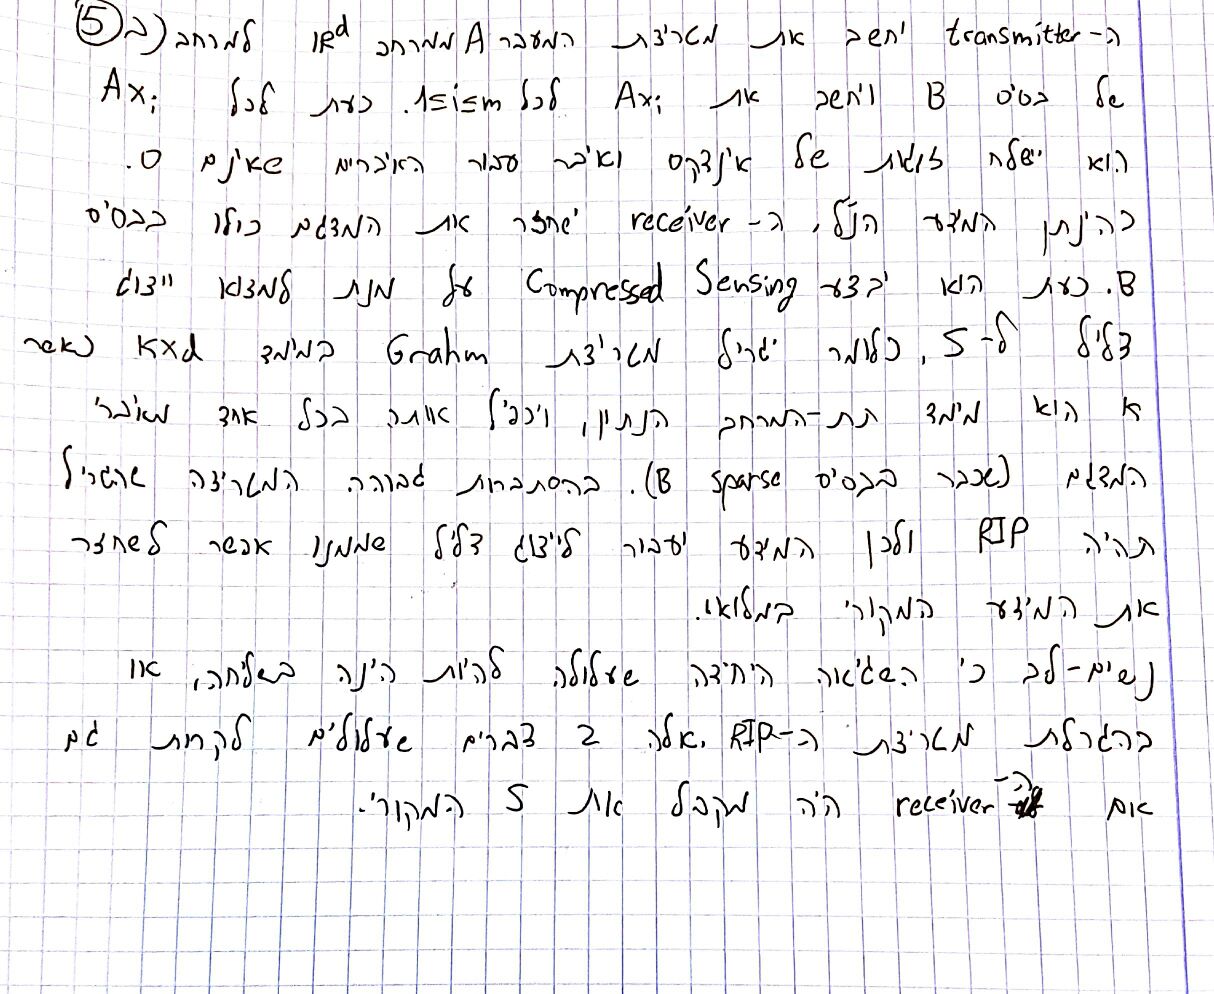 5) ב) ה-transmitter יחשב את מטריצת המעבר A ממרחב ℝᵈ למרחב
של בסיס B ויחשב את Axᵢ לכל 1≤i≤m. כעת לכל Axᵢ
הוא ישלח זוגות של אינדקס ואיבר עבור האיברים שאינם 0.
כהינתן המידע הנ"ל, ה-receiver ישחזר את המדגם כולו בבסיס
B. כעת הוא יבצע Compressed Sensing על מנת למצוא ייצוג
דליל ל-S, כלומר יגריל מטריצת Grahm במימד k×d כאשר
k הוא מימד תת-המרחב הנתון, ויכפיל אותה בכל אחד מאיברי
המדגם (שכבר בבסיס B sparse). בהסתברות גבוהה המטריצה שהגריל
תהיה RIP ולכן המידע יעבור לייצוג דליל שממנו אפשר לשחזר
את המידע המקורי במלואו.
נשים-לב כי השגיאה היחידה שעלולה להיות הינה בשליחה, או
בהגרלת מטריצת ה-RIP. אלה 2 דברים שעלולים לקרות גם
אם ה-receiver היה מקבל את S המקורי.